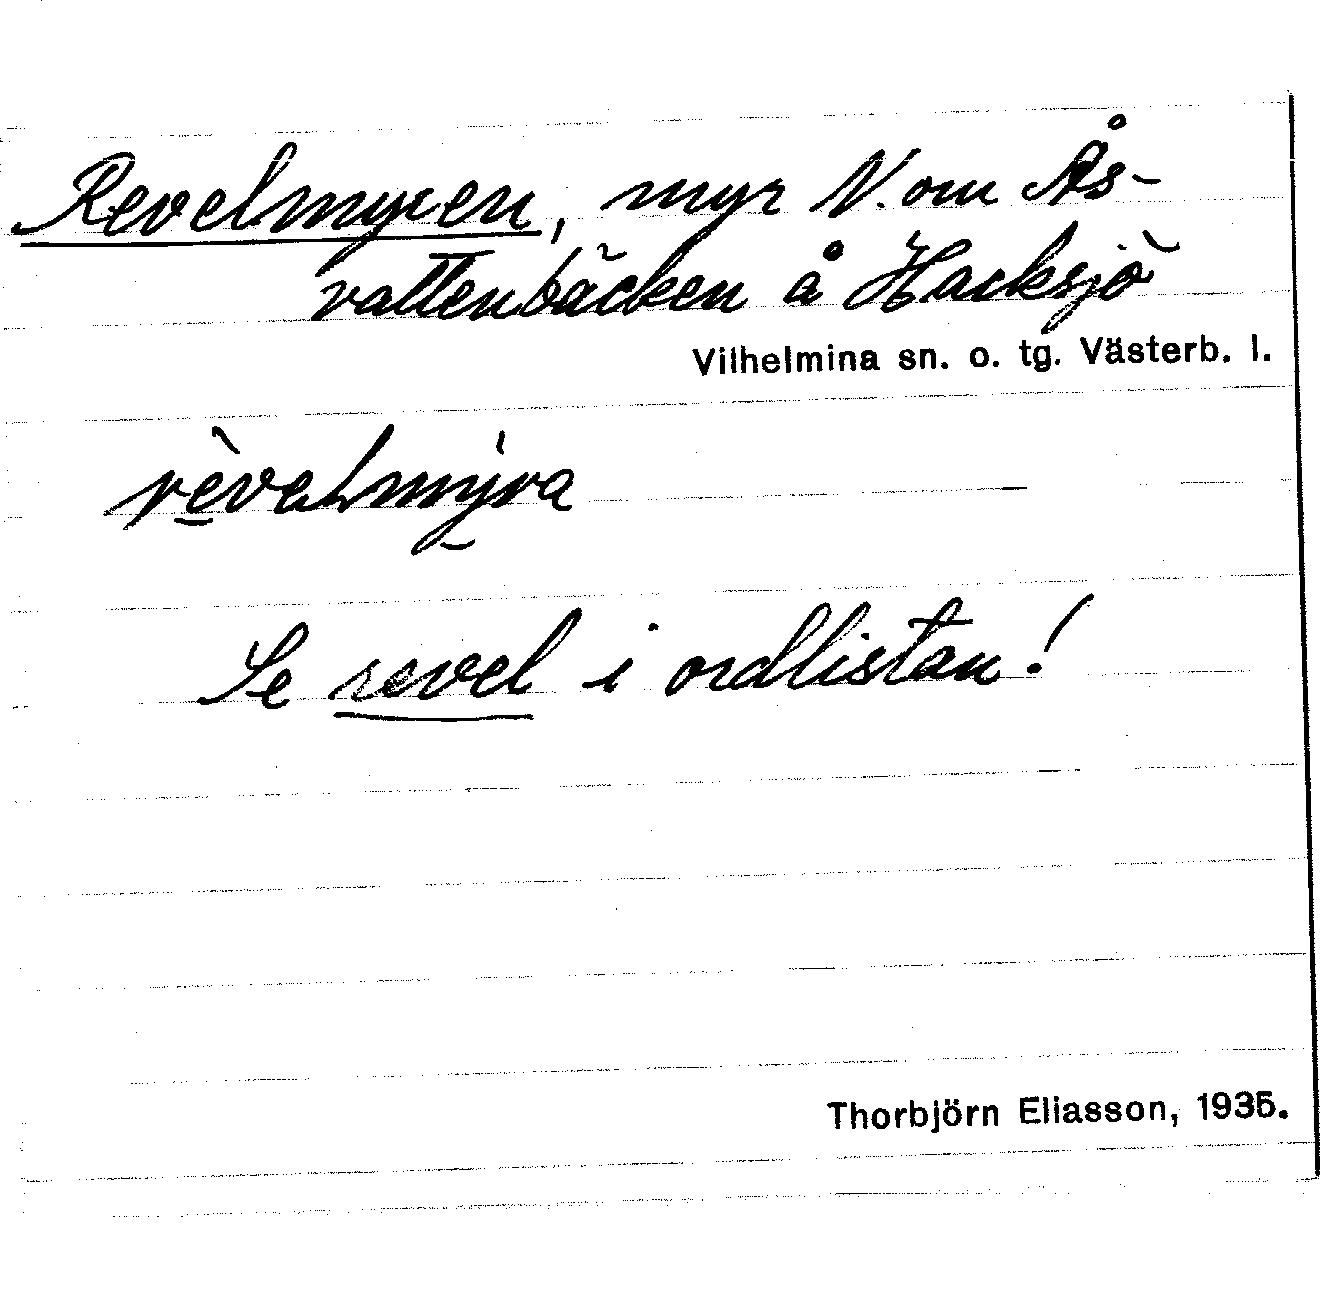 Revelmyren, myr N. om Ås-
vattenbäcken å Hacksjö
Vilhelmina sn. o. tg. Västerb. l.
rè̱vəlmýra
Se revel i ordlistan!
Thorbjörn Eliasson, 1935.